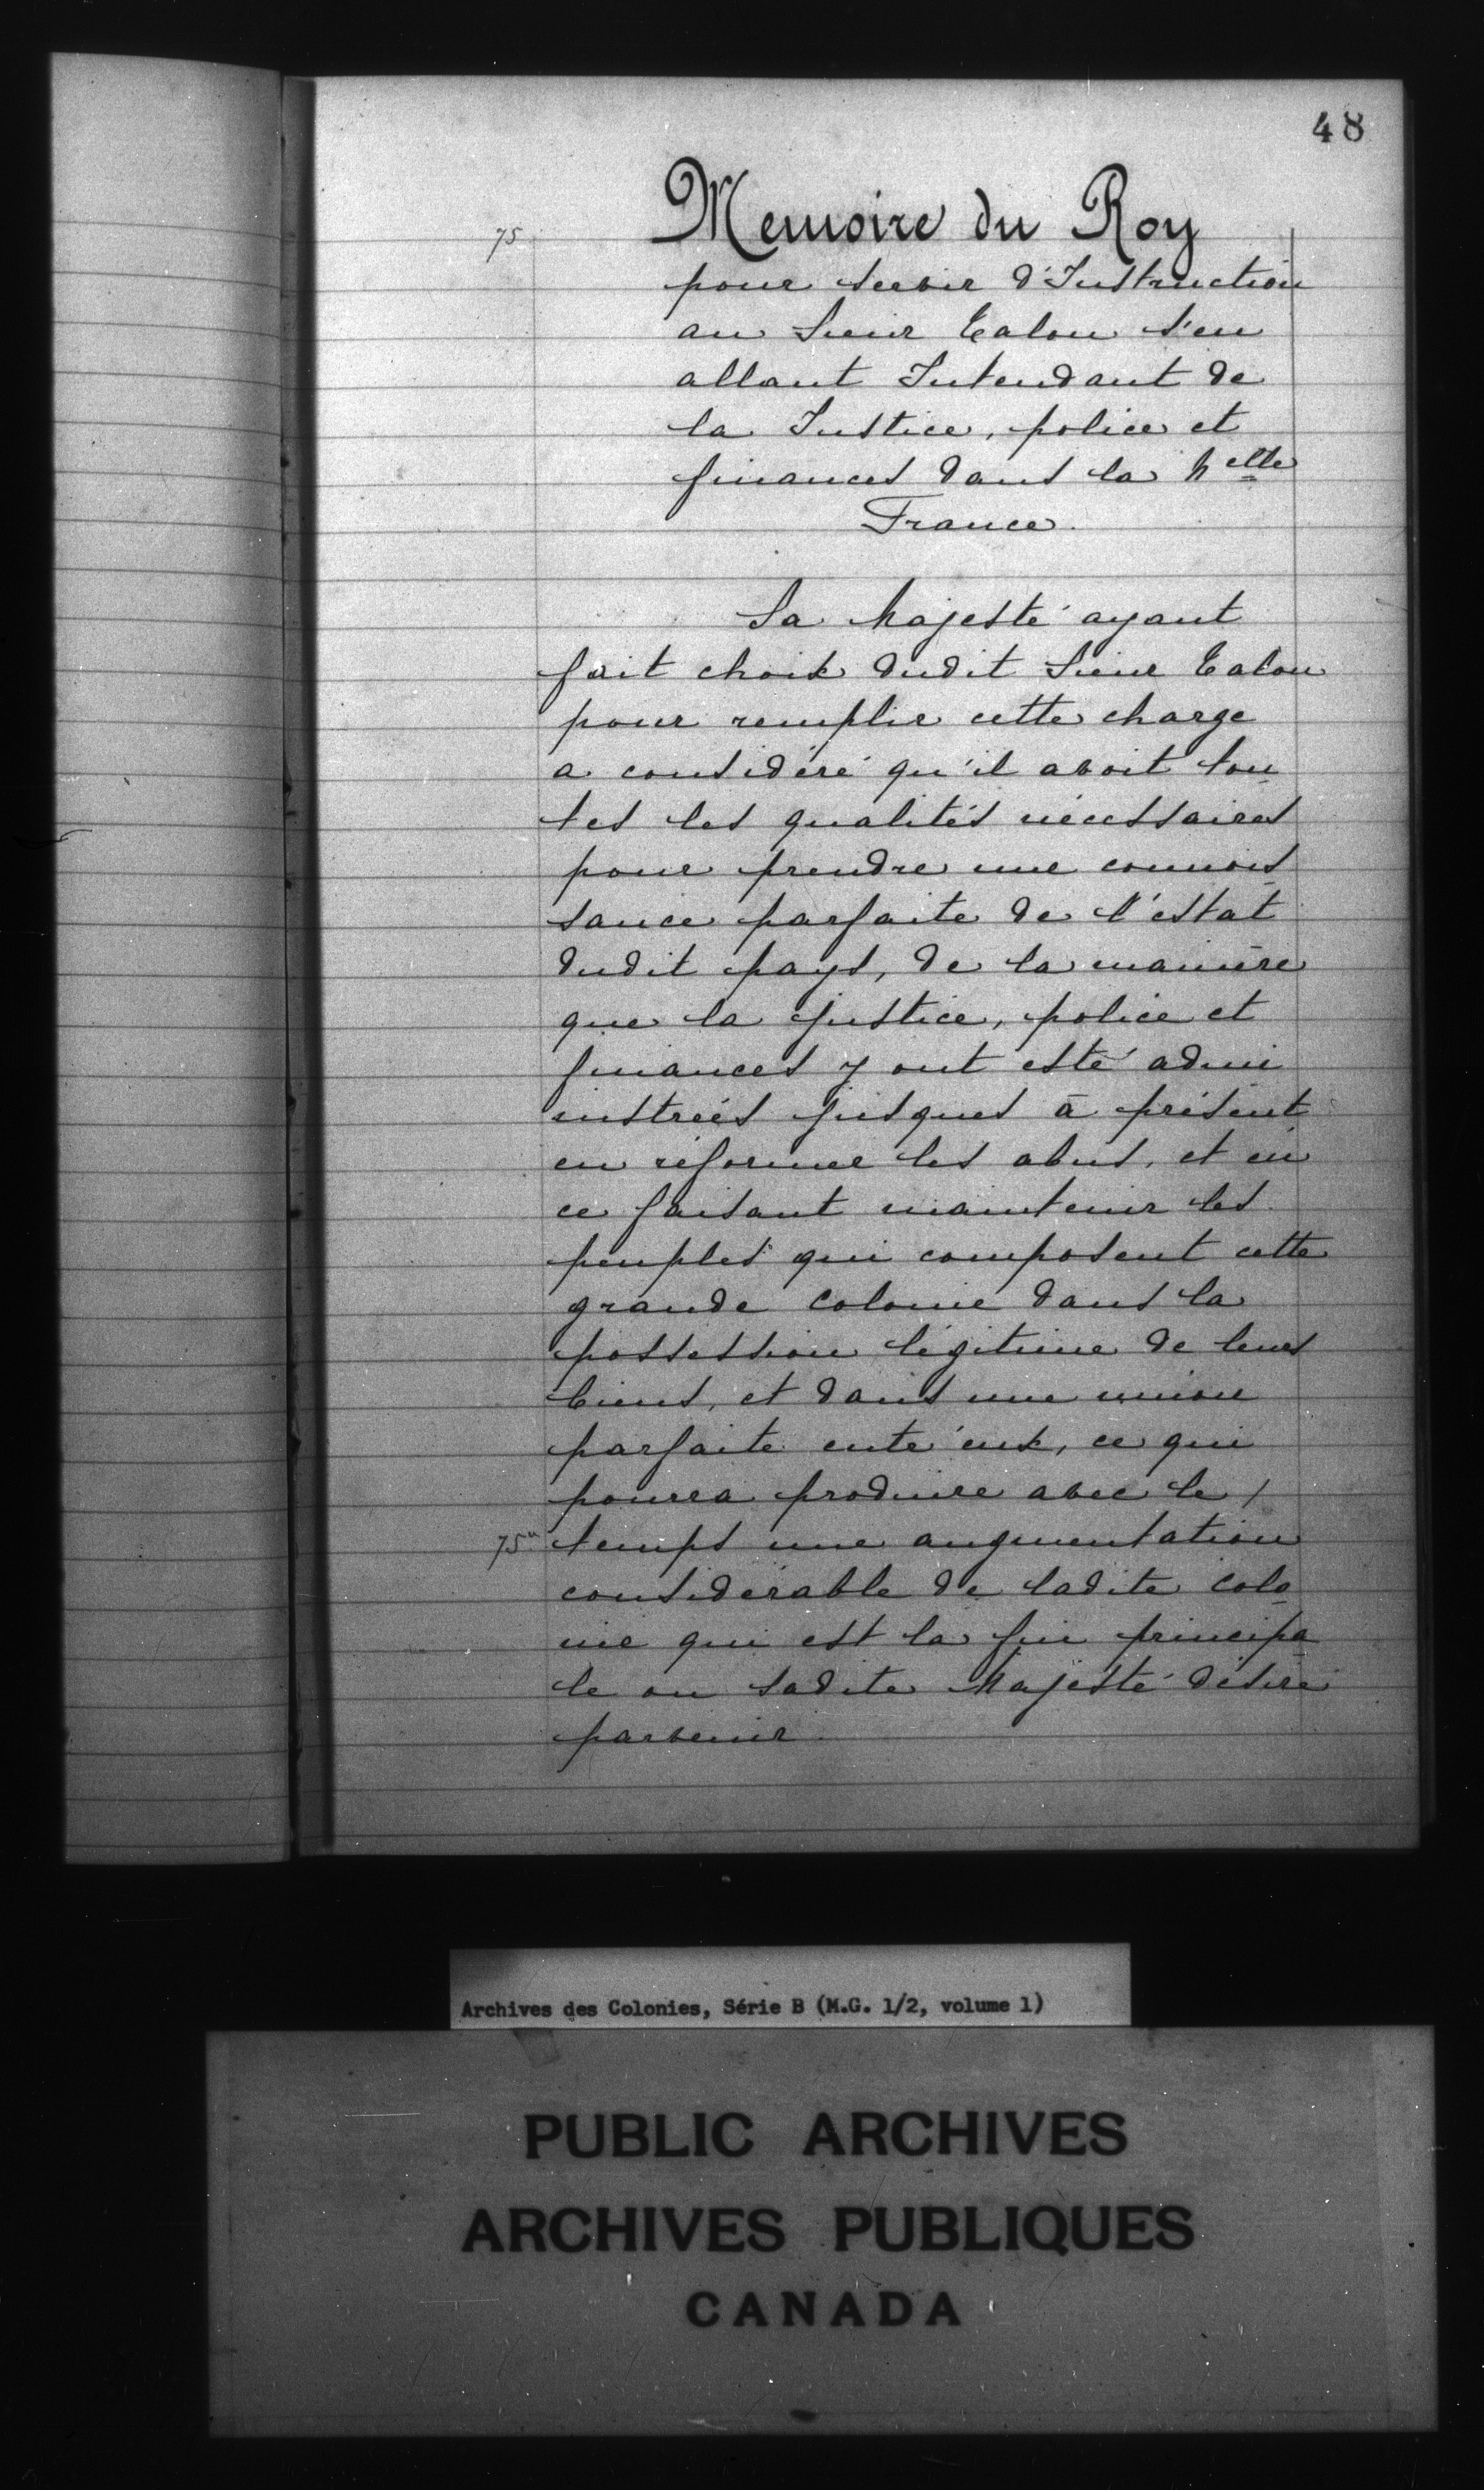 48
75
Memoire du Roy
pour servir d'Instruction
au Sieur Talon s'en
allant Intendant de
la Justice, police et
finances dans la Nelle
France.
Sa Majesté ayant
fait choix dudit Sieur Talon
pour remplir cette charge
a considéré qu'il avoit tou
tes les qualités nécessaires
pour prendre une connois
sance parfaite de l'estat
dudit pays, de la manière
que la justice, police et
finances y ont esté admi
nistrées jusques à présent
en réformer les abus, et en
ce faisant maintenir les
peuples qui composent cette
grande colonie dans la
possession légitime de leurs
biens, et dans une union
parfaite entr'eux, ce qui
pourra produire avec le /
75v temps une augmentation
considérable de ladite colo
nie qui est la fin principa
le ou sadite Majesté désire
parvenir.
Archives des Colonies, Série B (M.G. 1/2, volume 1)
PUBLIC ARCHIVES
ARCHIVES PUBLIQUES
CANADA